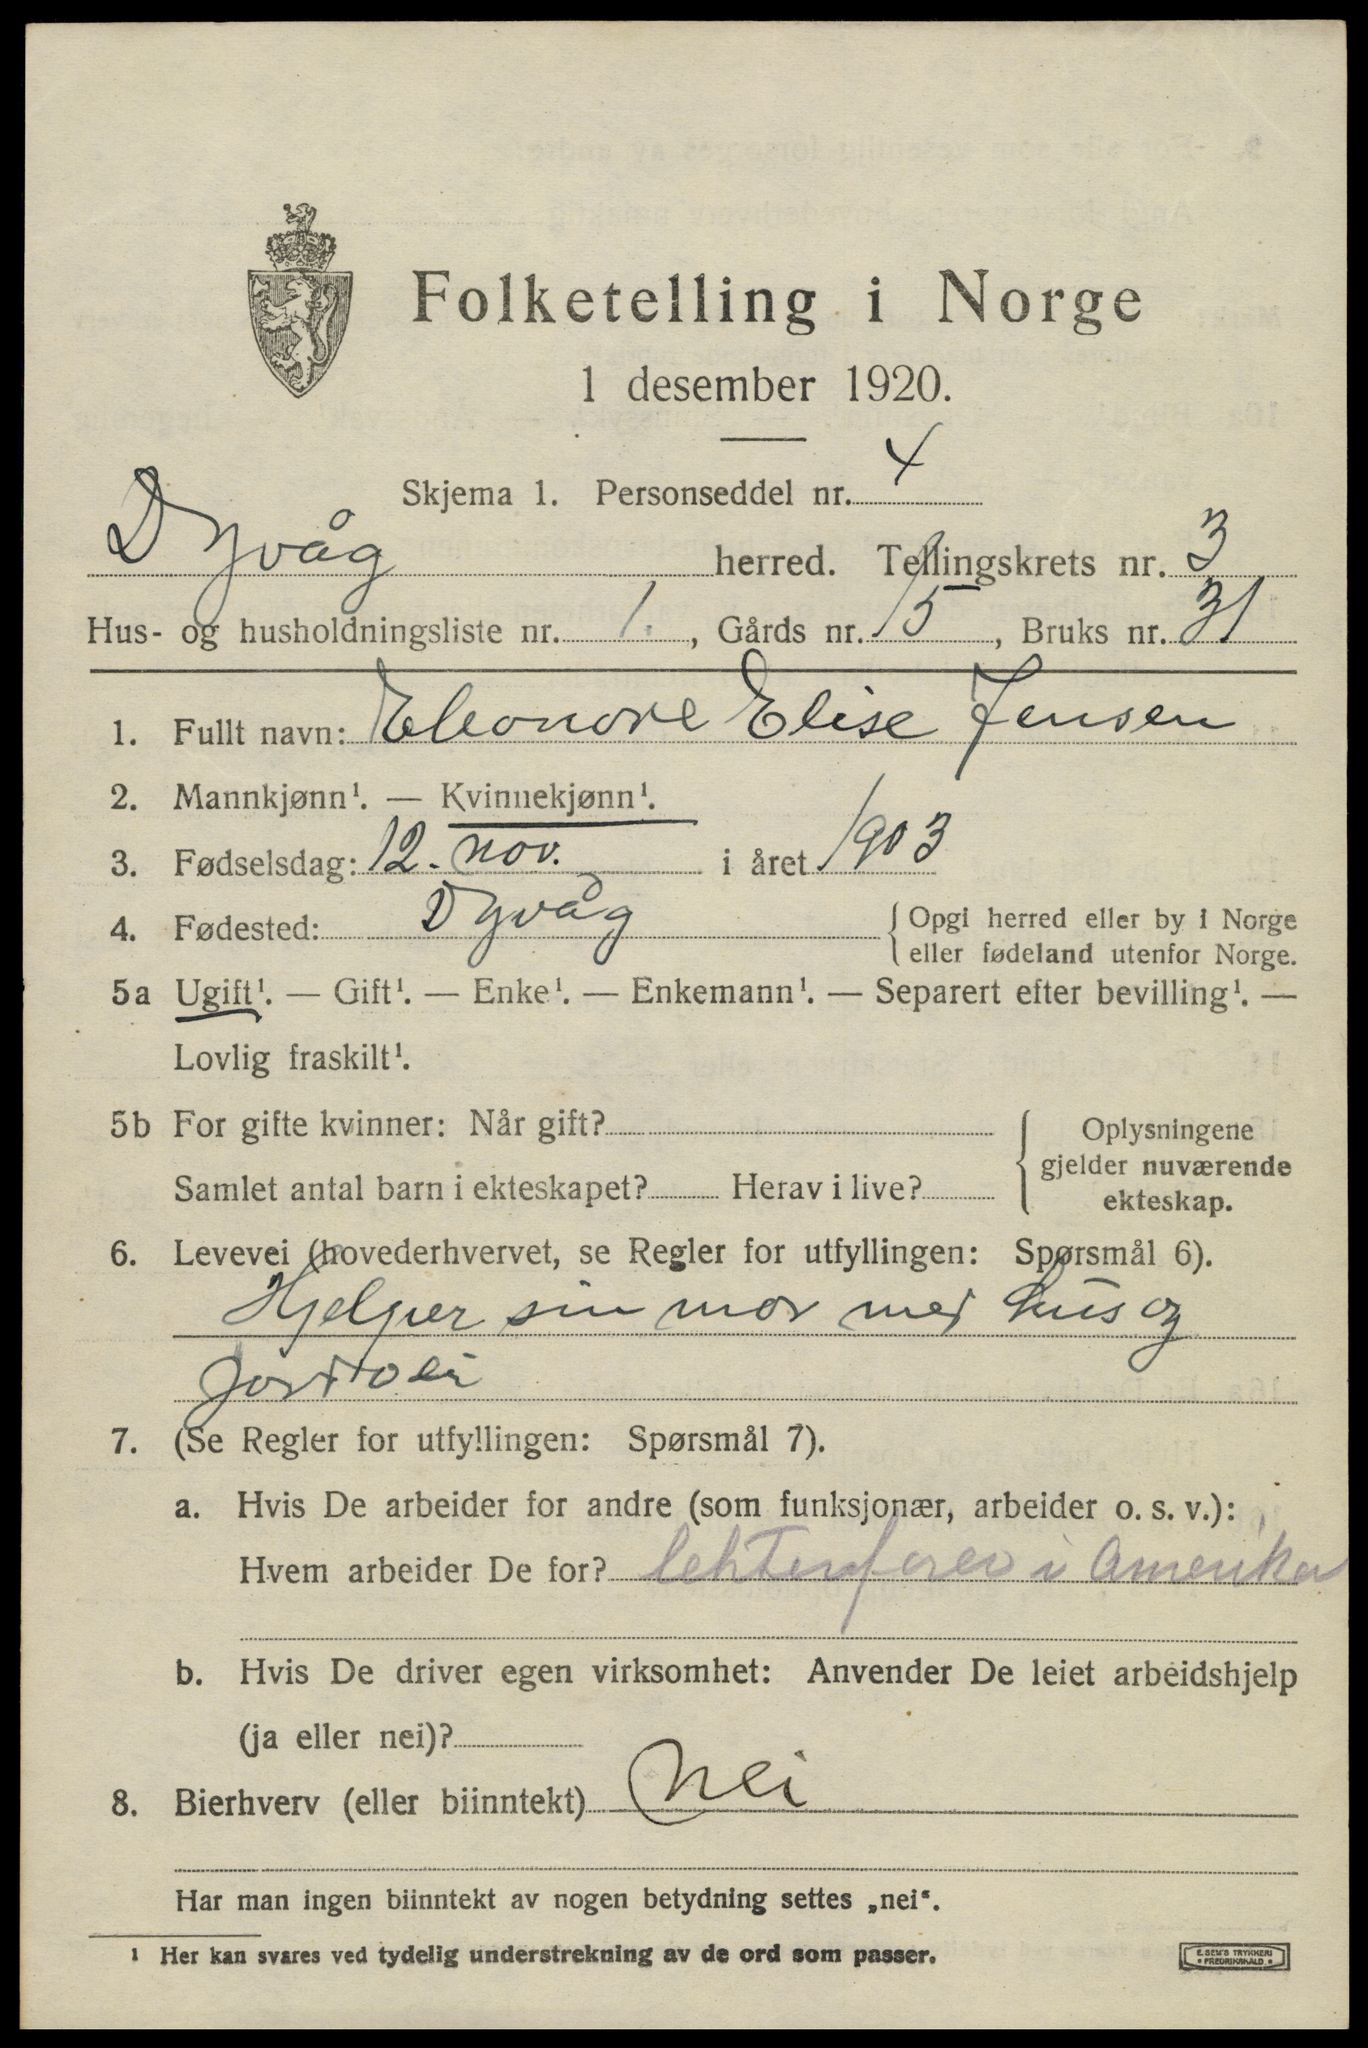 Folketelling i Norge
1 desember 1920.
Skjema 1. Personseddel nr. 4
Dyvåg herred. Tellingskrets nr. 3
Hus- og husholdningsliste nr. 1., Gårds nr. 15, Bruks nr. 31
1. Fullt navn: Eleonore Elise Jensen
2. Mannkjønn¹. — Kvinnekjønn¹.
3. Fødselsdag: 12. nov. i året 1903
4. Fødested: Dyvåg {Opgi herred eller by i Norge
eller fødeland utenfor Norge.
5a Ugift¹. — Gift¹. — Enke¹. — Enkemann¹. — Separert efter bevilling¹. —
Lovlig fraskilt¹.
5b For gifte kvinner: Når gift?
Samlet antal barn i ekteskapet? Herav i live?
{Oplysningene
gjelder nuværende
ekteskap.
6. Levevei (hovederhvervet, se Regler for utfyllingen: Spørsmål 6).
Hjelper sin mor med hus og
7. (Se Regler for utfyllingen: Spørsmål 7).
a. Hvis De arbeider for andre (som funksjonær, arbeider o. s. v.):
Hvem arbeider De for? i Amerika
b. Hvis De driver egen virksomhet: Anvender De leiet arbeidshjelp
(ja eller nei)?
8. Bierhverv (eller biinntekt) Nei
Har man ingen biinntekt av nogen betydning settes „nei“.
¹ Her kan svares ved tydelig understrekning av de ord som passer.
E. SEM'S TRYKKERI
* FREDRIKSHALD *